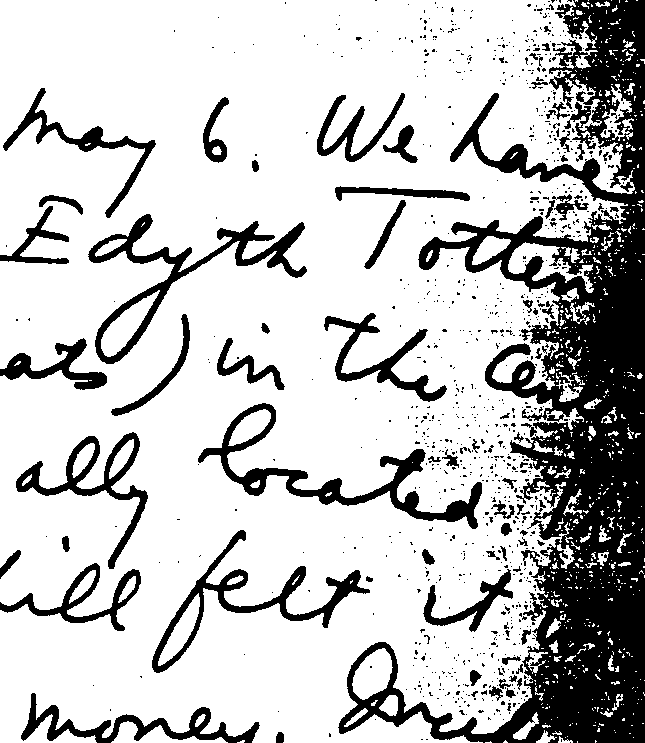 May 6. We have
Edyth Totten
ats) in the Cen
ally located. Th
ill felt it
money. Incid